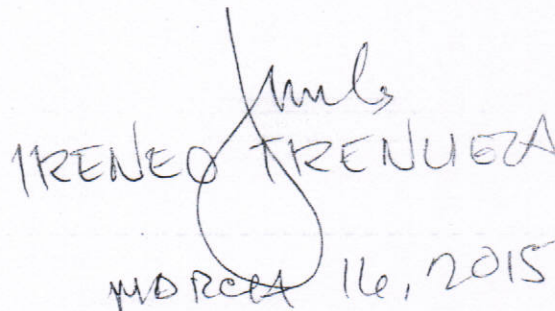 IRENEO TRENUEZA
MARCH 16, 2015